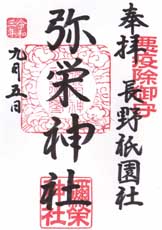 奉拝 長野祇園社
悪疫除御守
弥栄神社
彌榮神社
令和三年
九月五日